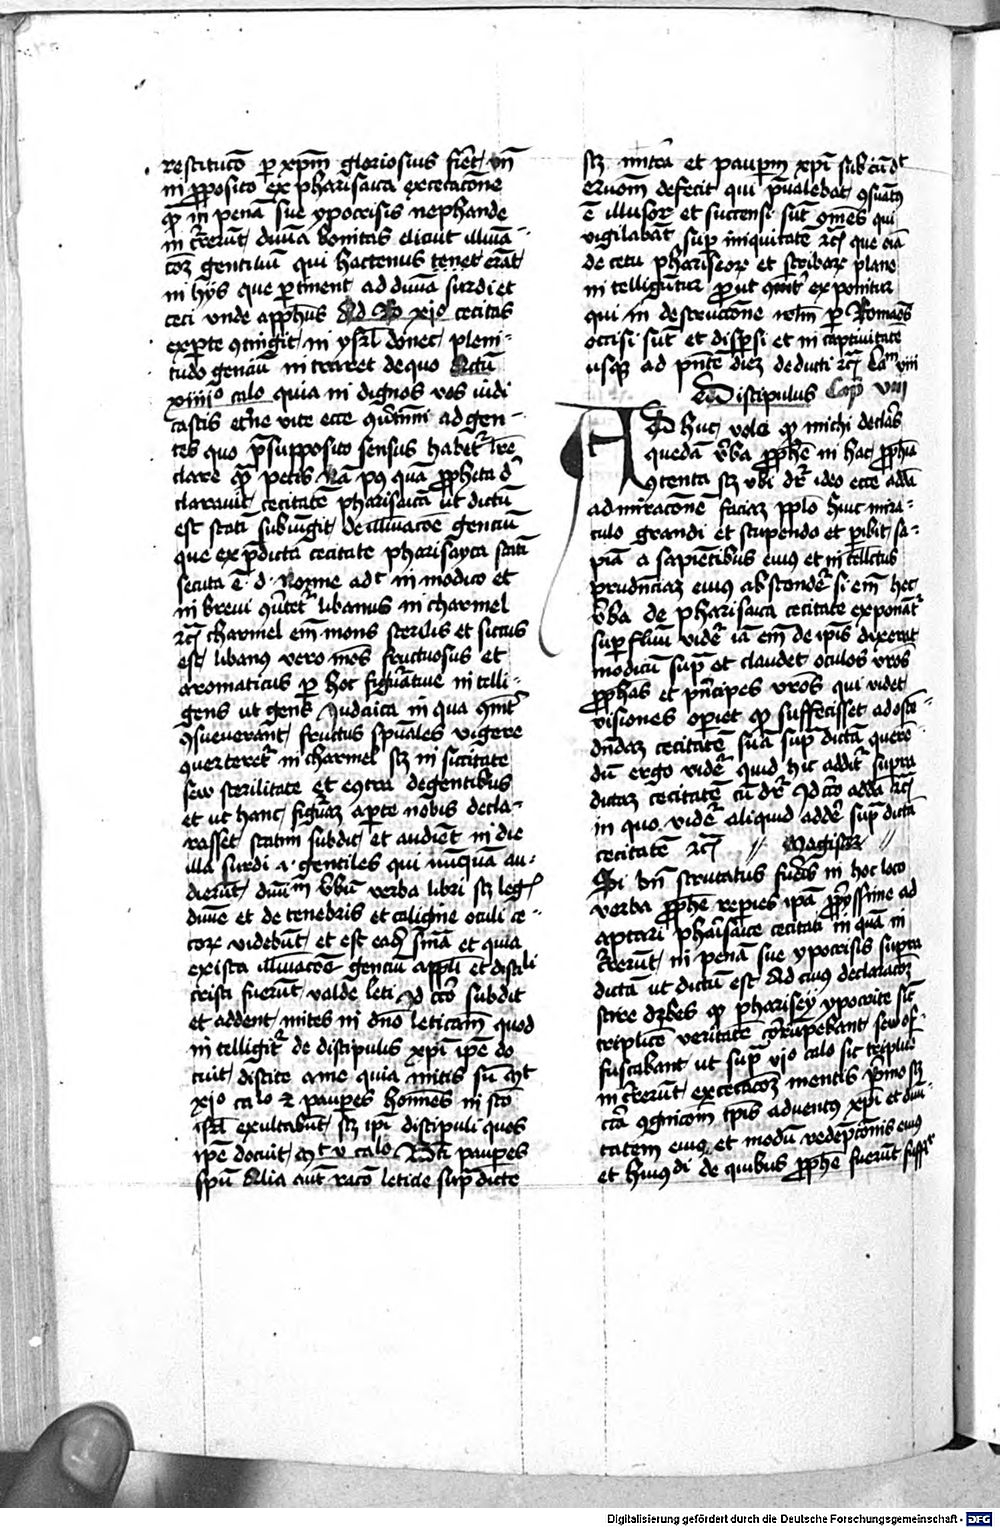 restitucō p xp̄m gloriosius fiēt / vn̄
in p̄posito ex pharisaica excecacōne
qm̄ in penā sue ypocrisis nephande
in c̄rerūt / diuīa bonitas elicuit illuīa-
cōz gentiliū qui hactenus tenet erāt
in hijs que p̄tinent ad diuīa surdi et
ceci unde app̄hūs Ad Ro xjo cecitas
ex parte ꝯtingit in ysrl̄ donec pleni-
tudo genciū intraret de quo Actū
xiiijo calo quia indignos vos iudi
castis et̄ne vite ecce ꝯūtimꝰ ad gen-
tes quo p̄supposito sensus habet̄ lr̄e
clare qm̄ petis Nā posquā ppheta d̄
clarauit cecitatē pharisaicā ut dictū
est statī subiūgit de illuīacōe genciū
que ex p̄dicta cecitate pharisayca statī
secuta ē d. Nonne adc in modico et
in breui ꝯūtet̄ libanus in charmel
rc̄ charmel em̄ mons sterilis et siccus
est / libanꝰ vero mōs fructuosus et
aromaticus p hoc figuratiue intelli-
gens ut gens Judaica in qua ꝯmit̄
ꝯsueuerant fructus spūales vigere
ꝯuerteret̄ in charmel sz in siccitate
seu sterilitate et eꝯtra de gentibus
et ut hanc figurā aperte nobis decla-
rasset statim subdit et audient in die
illa surdi i. gentiles qui nūquā au-
dierūt / diuinū v̄bū verba libri sz leḡ
diuīe et de tenebris et caligine oculi ce-
corz videbūt / et est eadē sn̄ia et quia
ex ista illuīacōe genciū appl̄i et discili
cristi fuerūt valde leti Id c̄co subdit
et addent mites in dn̄o leticiam quod
intelligit̄ de discipulis xp̄i ipē do
cuit / discite a me quia mitis sū Mt
xjo calo & pauperes homines in sc̄o
isrl̄ exultabūt / sz ipī discipuli quos
ipē docuit / Mt v calo Bt̄i pauperes
spū Alia aūt racō leticie sup̄dicte
sz mitiū et paupm̄ xp̄i subdit̄
qm̄ defecit qui p̄ualebat ꝯsūatꝰ
ē illusor et succensi sūt om̄es qui
vigilabāt sup iniquitatē rc̄ que eciā
de cetu phariseorz et scribarz plane
intelliguntur prout ꝯmit̄ exponitur
qui in destruccōne irl̄m p Romāos
occisi sūt et disp̄si et in captiuitatē
usqz ad p̄ntē diez deducti rc̄ Cam viij
Discipulus Capm̄ viij
AD huc volo qm̄ michi declares
quedā v̄ba pphē in hac pphīa
ꝯtenta sz vbi dr̄ ideo ecce addā
admiracōnē faciaz pplo huic mira-
culo grandi et stupendo et pibit sa-
piā a sapientibus eius et intellectus
prudenciaz eius abscondet̄ si em̄ hec
v̄ba de pharisaica cecitate exponāt̄
supfluū videt̄ iā em̄ de ipīs dixerat
modicū sup̄ et claudet oculos vrōs
pphās et p̄ncipes vrōs qui vidēt
visiones operiet qm̄ suffecisset ad osten-
dendaz cecitatē suā sup̄dictā querē
dū ergo videt̄ quid hic addit̄ supra
dictaz cecitatē cū dr̄ Id c̄co addā rc̄
in quo videt̄ aliquid addē sup̄dictā
cecitatē rc̄ // Magister //
Si bn̄ scrutatus fueris in hoc loco
verba pphē reperies ipā pprijssime ad
aptari pharisaice cecitati in quā in
c̄rerūt in penā sue ypocrisis supra
dictā ut dictū est Ad cuiꝰ declaracōz
scire debes qm̄ pharisey ypocrite sic
triplicē veritatē corrūpebant seu of-
fuscabant ut sup̄ vjo calo sic triplicē
in c̄rerūt excecacōz mentis primo sz
cir̄ cognicōm̄ tp̄is aduentus xp̄i et diui-
tatem eiꝰ et modū redēpcōnis eiꝰ
et huiꝰdi de quibus pphē fuerūt suffi
Digitalisierung gefördert durch die Deutsche Forschungsgemeinschaft - DFG